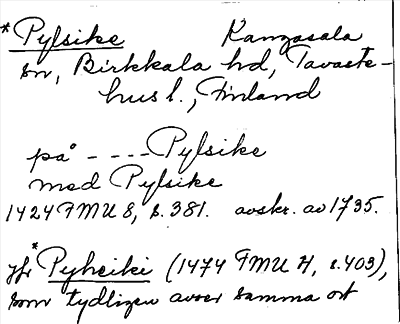 *Pylsike Kangasala
sn, Birkkala hd, Tavaste-
hus l., Finland
på ----Pylsike
med Pylsike
1424 FMU 8, s. 381. avskr. av 1735.
jfr *Pyheiki (1474 FMU 4, s. 403),
som tydligen avser samma ort